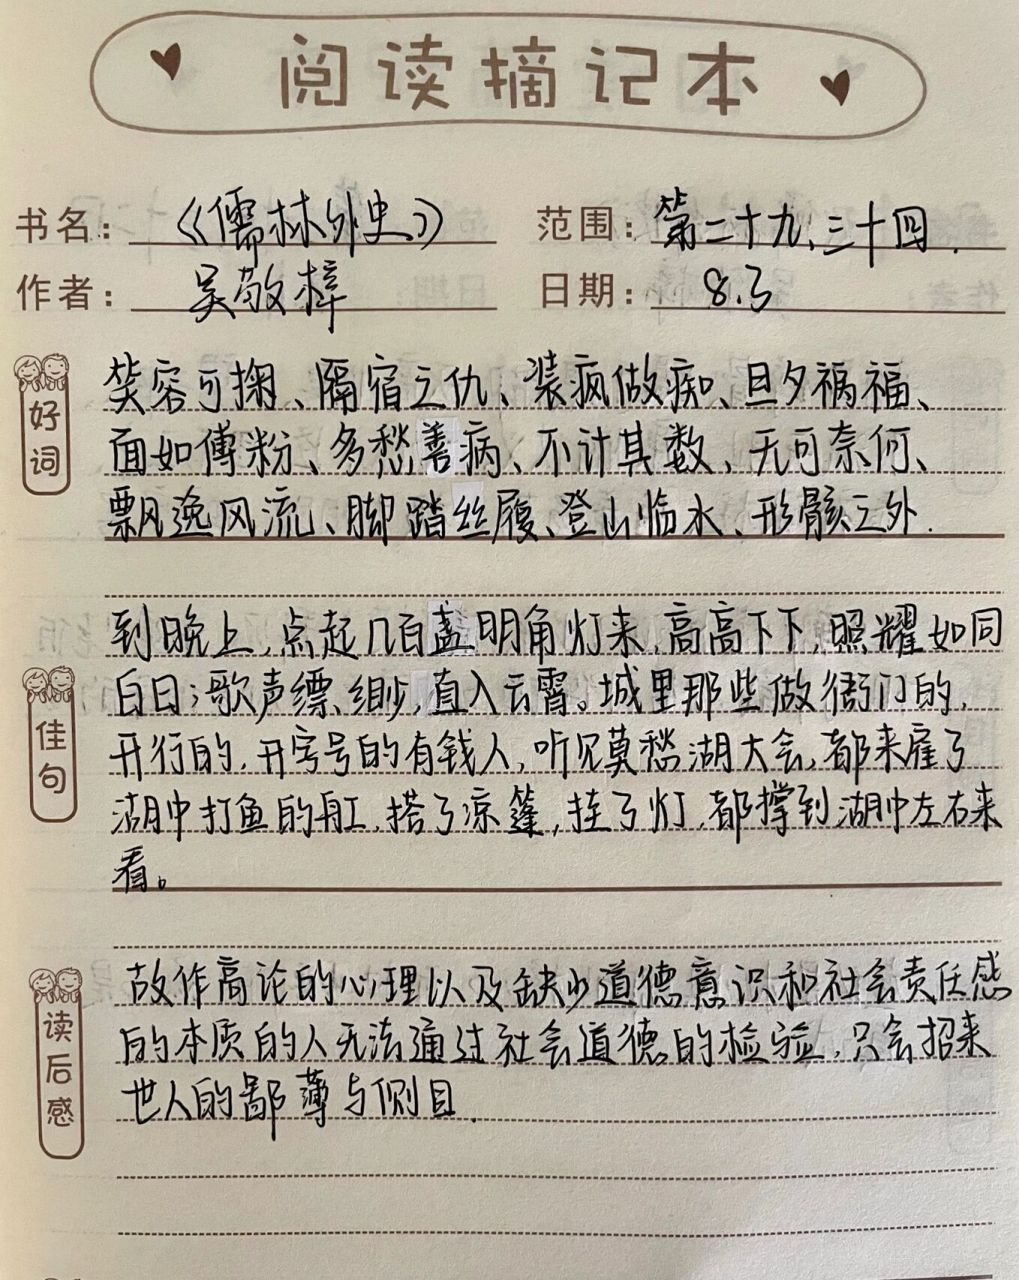 阅读摘记本
书名：《儒林外史》 范围：第二十九、三十四.
作者：吴敬梓 日期：8.3
好词
笑容可掬、隔宿之仇、装疯做痴、旦夕祸福、
面如傅粉、多愁善病、不计其数、无可奈何、
飘逸风流、脚踏丝履、登山临水、形骸之外.
佳句
到晚上,点起几百盏明角灯来,高高下下,照耀如同
白日;歌声缥缈,直入云霄。城里那些做衙门的,
开行的,开字号的有钱人,听见莫愁湖大会,都来雇了
湖中打鱼的船,搭了凉篷,挂了灯,都撑到湖中左右来
看。
读后感
故作高论的心理以及缺少道德意识和社会责任感
的本质的人无法通过社会道德的检验,只会招来
世人的鄙薄与侧目.